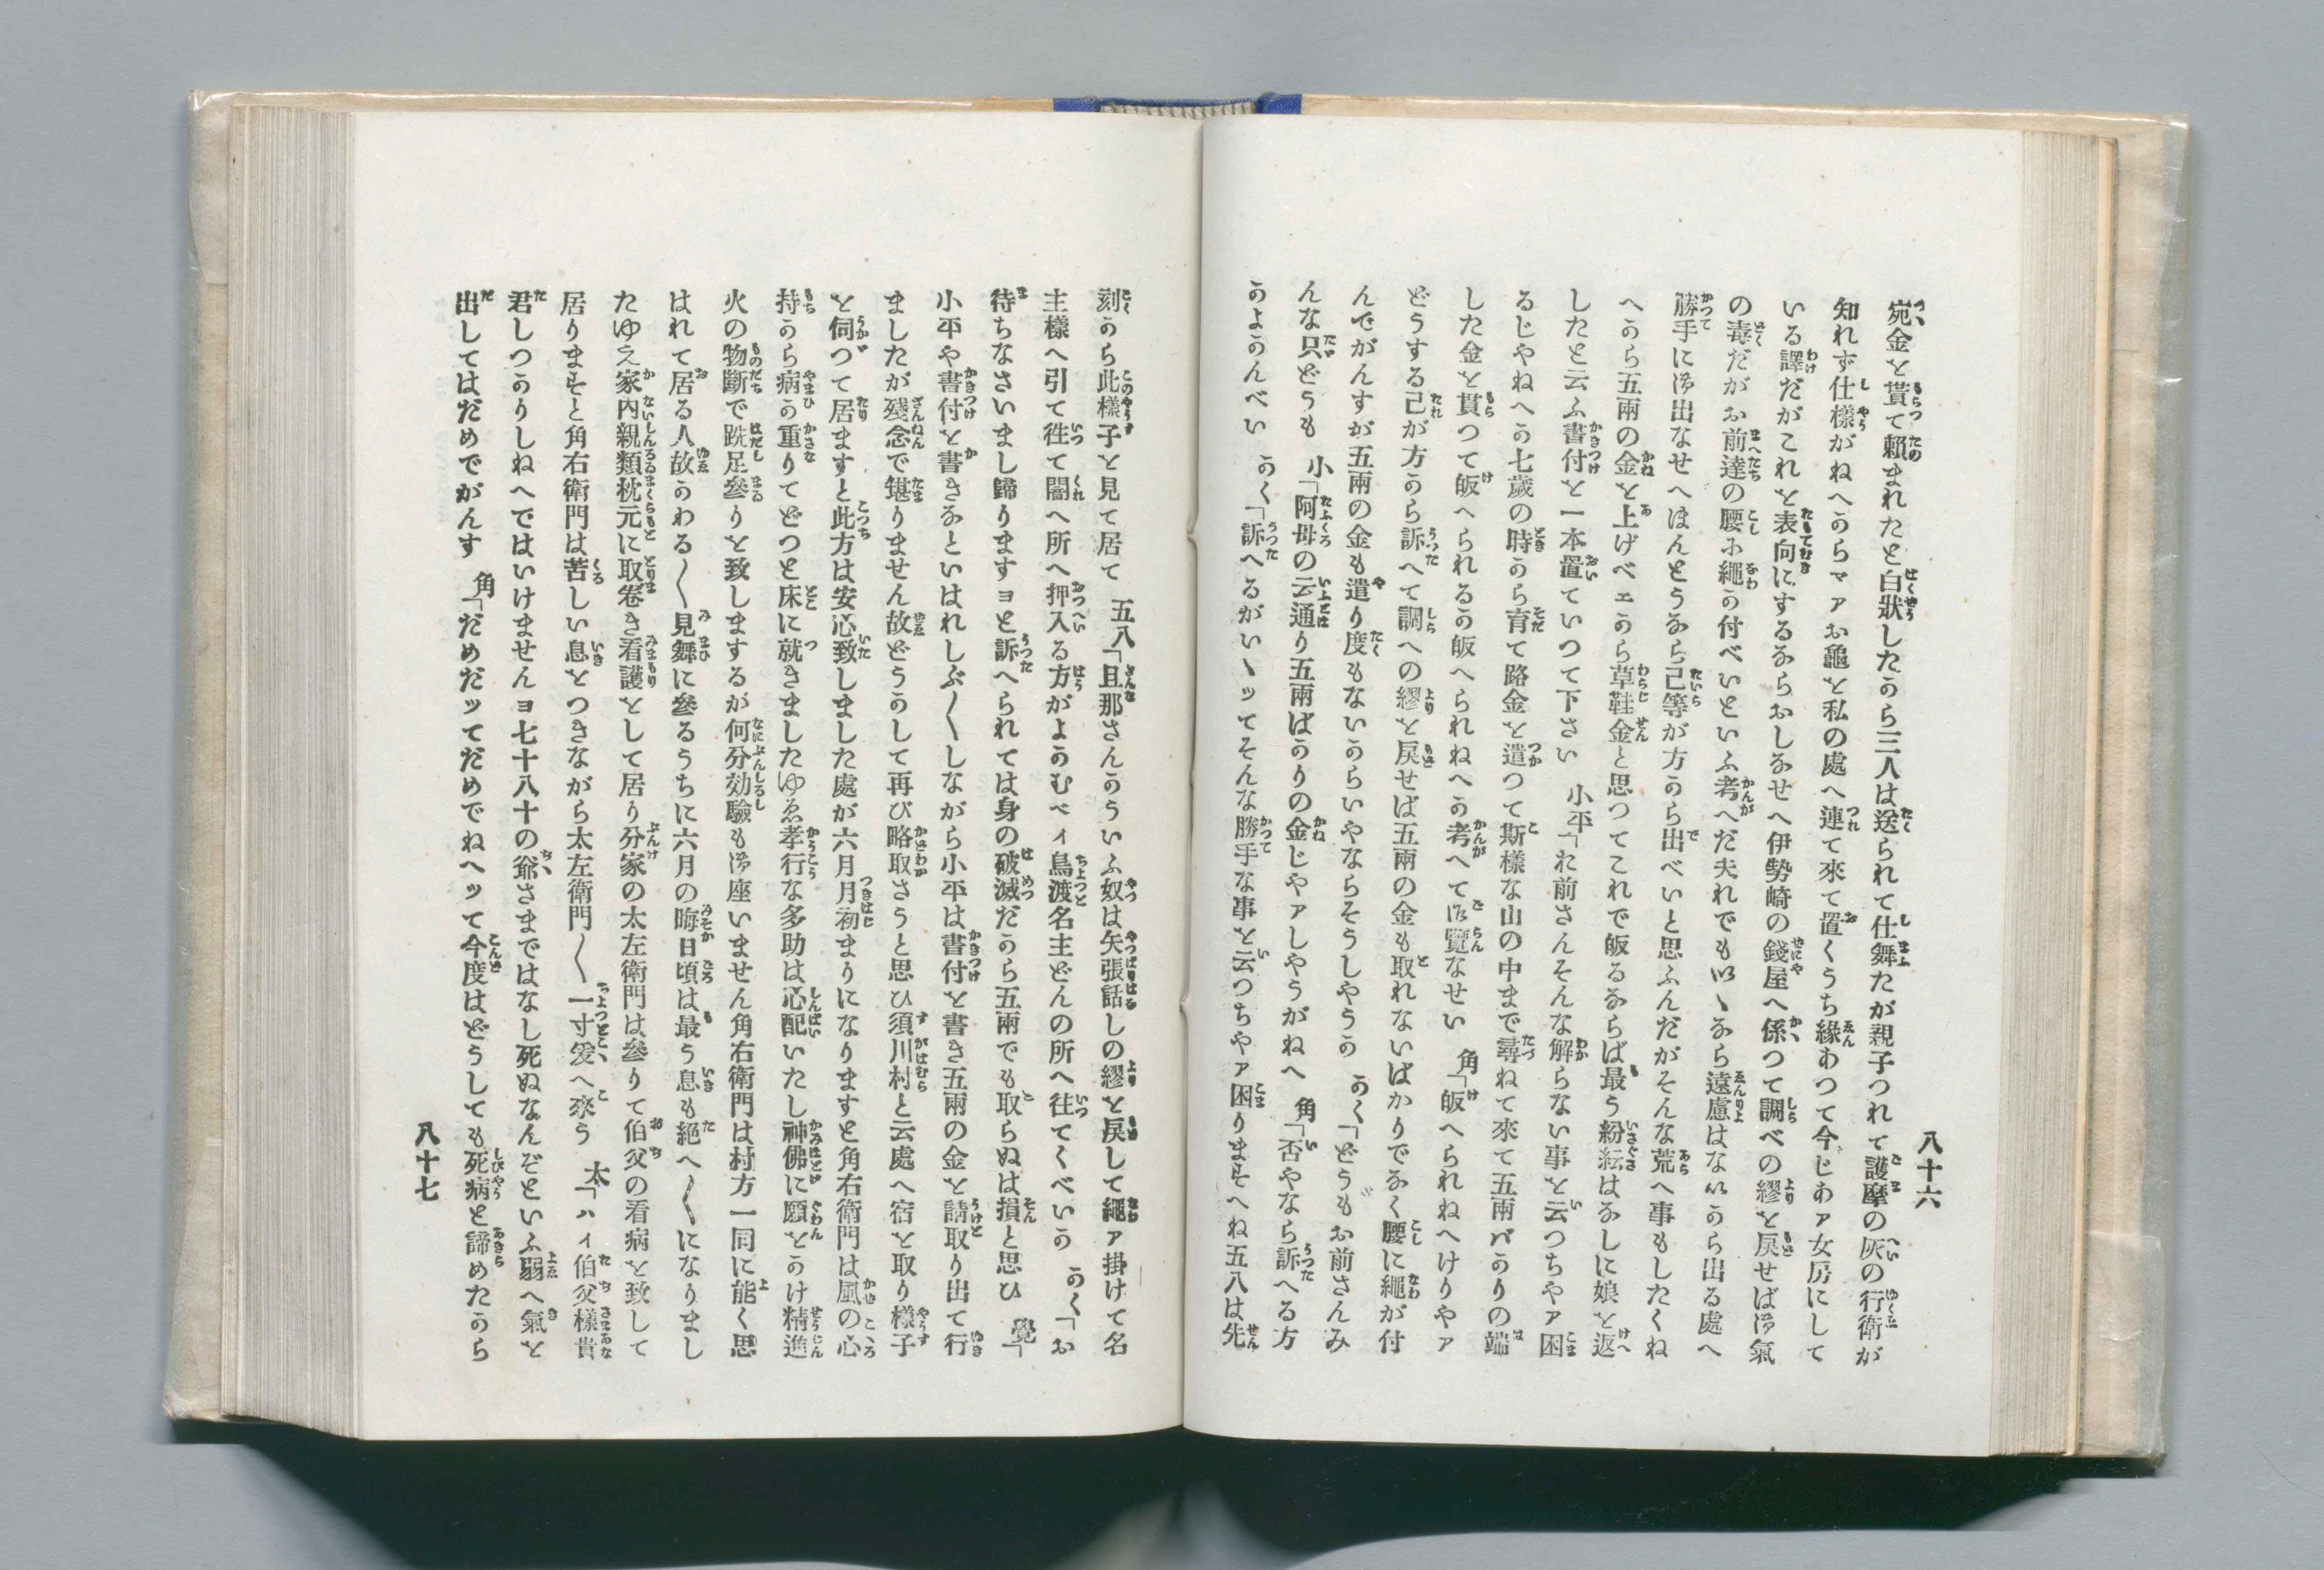 八十六
宛金を貰て頼まれたと白狀したから三人は送られて仕舞たが親子つれて護摩の灰の行衛が
知れず仕樣がねへからマアお龜を私の處へ連て來て置くうち緣あつて今じあア女房にして
いる譯だがこれを表向にするならおしなせへ伊勢崎の錢屋へ係つて調べの繆を戻せば御氣
の毒だがお前達の腰に繩が付べいといふ考へだ夫れでもいゝなら遠慮はないから出る處へ
勝手に御出なせへほんとうなら己等が方から出べいと思ふんだがそんな荒へ事もしたくね
へから五兩の金を上げべエから草鞋金と思つてこれで皈るならば最う紛紜はなしに娘を返
したと云ふ書付を一本置ていつて下さい　小平「お前さんそんな解らない事を云つちやア困
るじやねへか七歲の時から育て路金を遣つて斯樣な山の中まで尋ねて來て五兩バかりの端
した金を貰つて皈へられるか皈へられねへか考へて御覽なせい　角「皈へられねへけりやア
どうする己が方から訴へて調への繆を戻せば五兩の金も取れないばかりでなく腰に繩が付
んでがんすが五兩の金も遣り度もないからいやならそうしやうか　かく「どうもお前さんみ
んな只どうも　小「阿母の云通り五兩ばかりの金じやアしやうがねへ　角「否やなら訴へる方
かよかんべい　かく「訴へるがいゝツてそんな勝手な事を云つちやア困りまそへね五八は先
刻から此樣子を見て居て　五八「旦那さんかういふ奴は矢張話しの繆を戻して繩ア掛けて名
主樣へ引て徃て闇へ所へ押入る方がよかむべィ鳥渡名主どんの所へ往てくべいか　かく「お
待ちなさいまし歸りますヨと訴へられては身の破滅だから五兩でも取らぬは損と思ひ　覺「
小平や書付を書きなといはれしぶ〱しながら小平は書付を書き五兩の金を請取り出て行
ましたが殘念で堪りません故どうかして再び略取さうと思ひ須川村と云處へ宿を取り樣子
を伺つて居ますと此方は安心致しました處が六月月初まりになりますと角右衛門は風の心
持から病が重りてどつと床に就きましたゆゑ孝行な多助は心配いたし神佛に願をかけ精進
火の物斷で跣足參りを致しまするが何分効驗も御座いません角右衛門は村方一同に能く思
はれて居る人故かわる〱見舞に參るうちに六月の晦日頃は最う息も絕へ〱になりまし
たゆえ家內親類枕元に取卷き看護をして居り分家の太左衛門は參りて伯父の看病を致して
居りまそと角右衛門は苦しい息をつきながら太左衛門〱一寸爰へ來う　太「ハィ伯父樣貴
君しつかりしねへではいけませんヨ七十八十の爺さまではなし死ぬなんぞといふ弱へ氣を
出してはだめでがんす　角「だめだツてだめでねへツて今度はどうしても死病と諦めたから
八十七